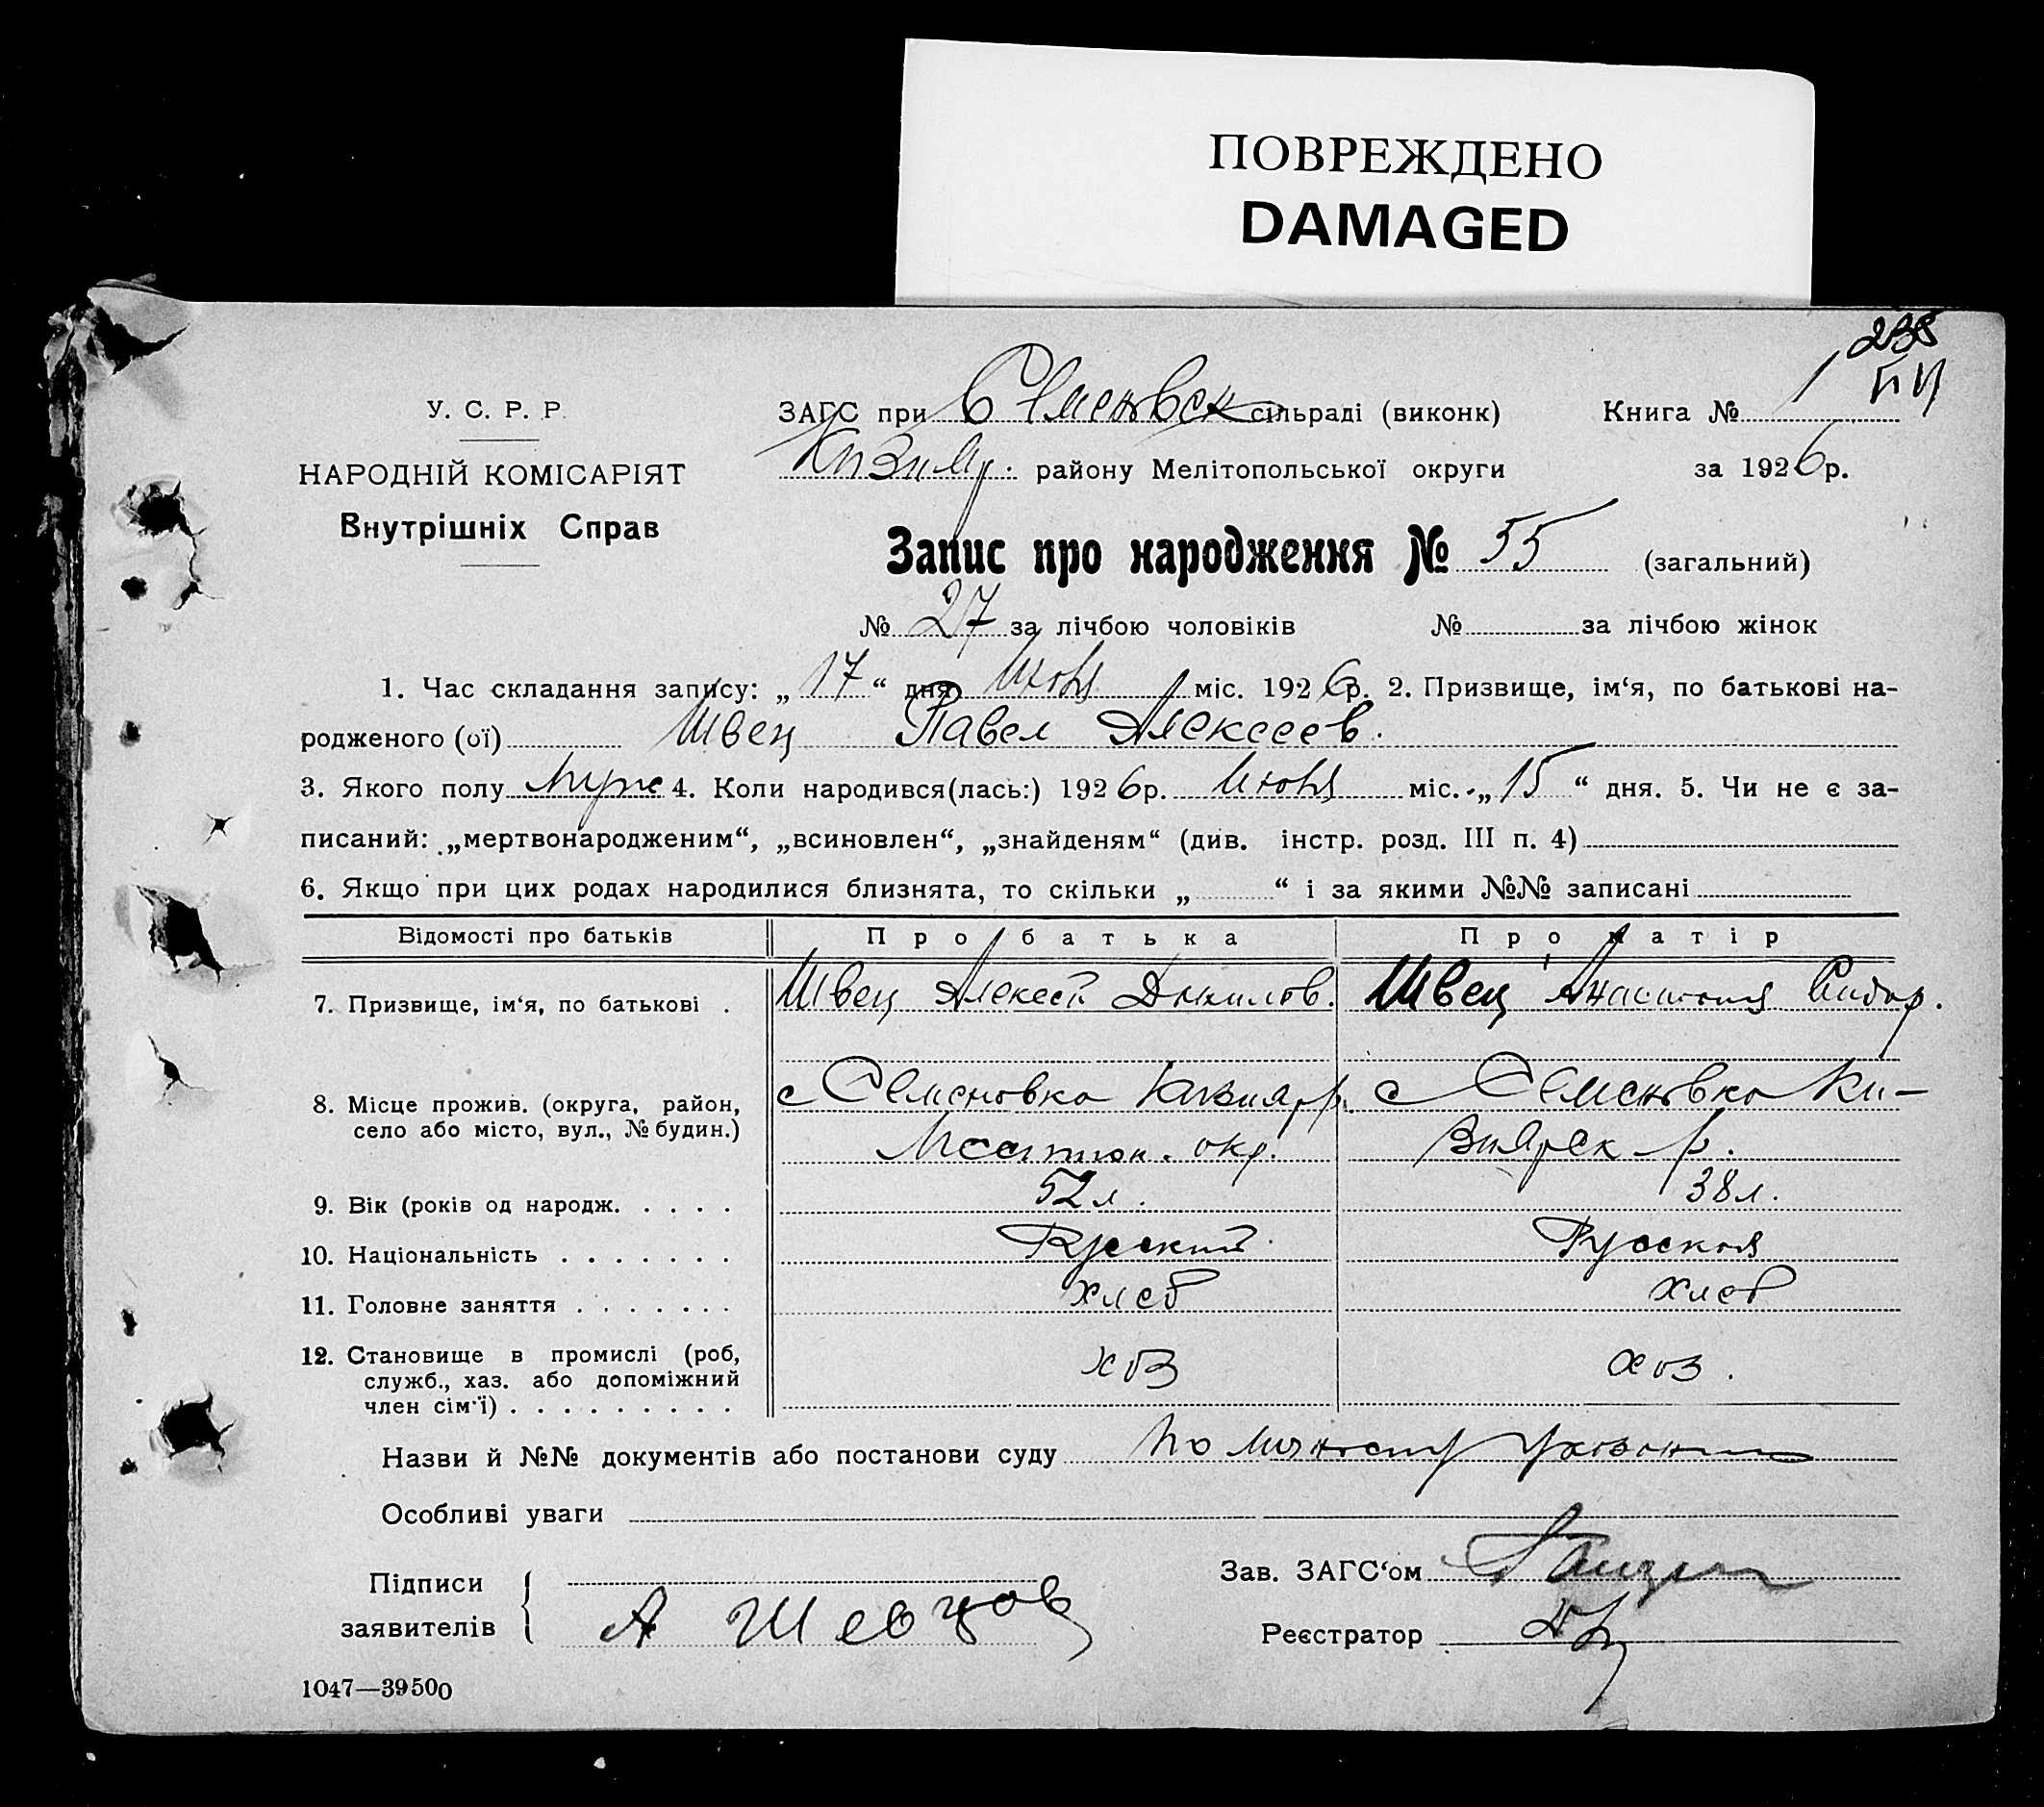 ПОВРЕЖДЕНО
DAMAGED
238
У. С. Р. Р.
НАРОДНІЙ КОМІСАРІЯТ
Внутрішніх Справ
ЗАГС при Семеновск сільраді (виконк) Книга № 1
Кизияр. району Мелітопольської округи за 1926 р.
Запис про народження № 55 (загальний)
№ 27 за лічбою чоловіків № за лічбою жінок
1. Час складання запису: „ 17 “ дня Июня міс. 1926 р. 2. Призвище, ім‘я, по батькові на-
родженого (ої) Швец Павел Алексеев.
3. Якого полу муж 4. Коли народився(лась:) 1926 р. Июня міс. „ 15 “ дня. 5. Чи не є за-
писаний: „мертвонародженим“, „всиновлен“, „знайденям“ (див. інстр. розд. III п. 4)
6. Якщо при цих родах народилися близнята, то скільки „ “ і за якими №№ записані
Відомості про батьків Про батька Про матір
7. Призвище, ім‘я, по батькові . Швец Алексей Данилов. Швец Анастасия Сидор.
8. Місце прожив. (округа, район, с Семеновка Кизияр р. с Семеновка Ки-
село або місто, вул., № будин.) Мелитоп. окр. зиярск р.
9. Вік (років од народж. . . . . 52 л. 38 л.
10. Національність . . . . . . . Русский Русская
11. Головне заняття . . . . . . . хлеб хлеб
12. Становище в промислі (роб, хоз хоз.
служб., хаз. або допоміжний
член сім‘ї) . . . . . . . . .
Назви й №№ документів або постанови суду по личному указанию
Особливі уваги
Підписи Зав. ЗАГС‘ом
заявителів А Шевцов Реєстратор
1047—39500